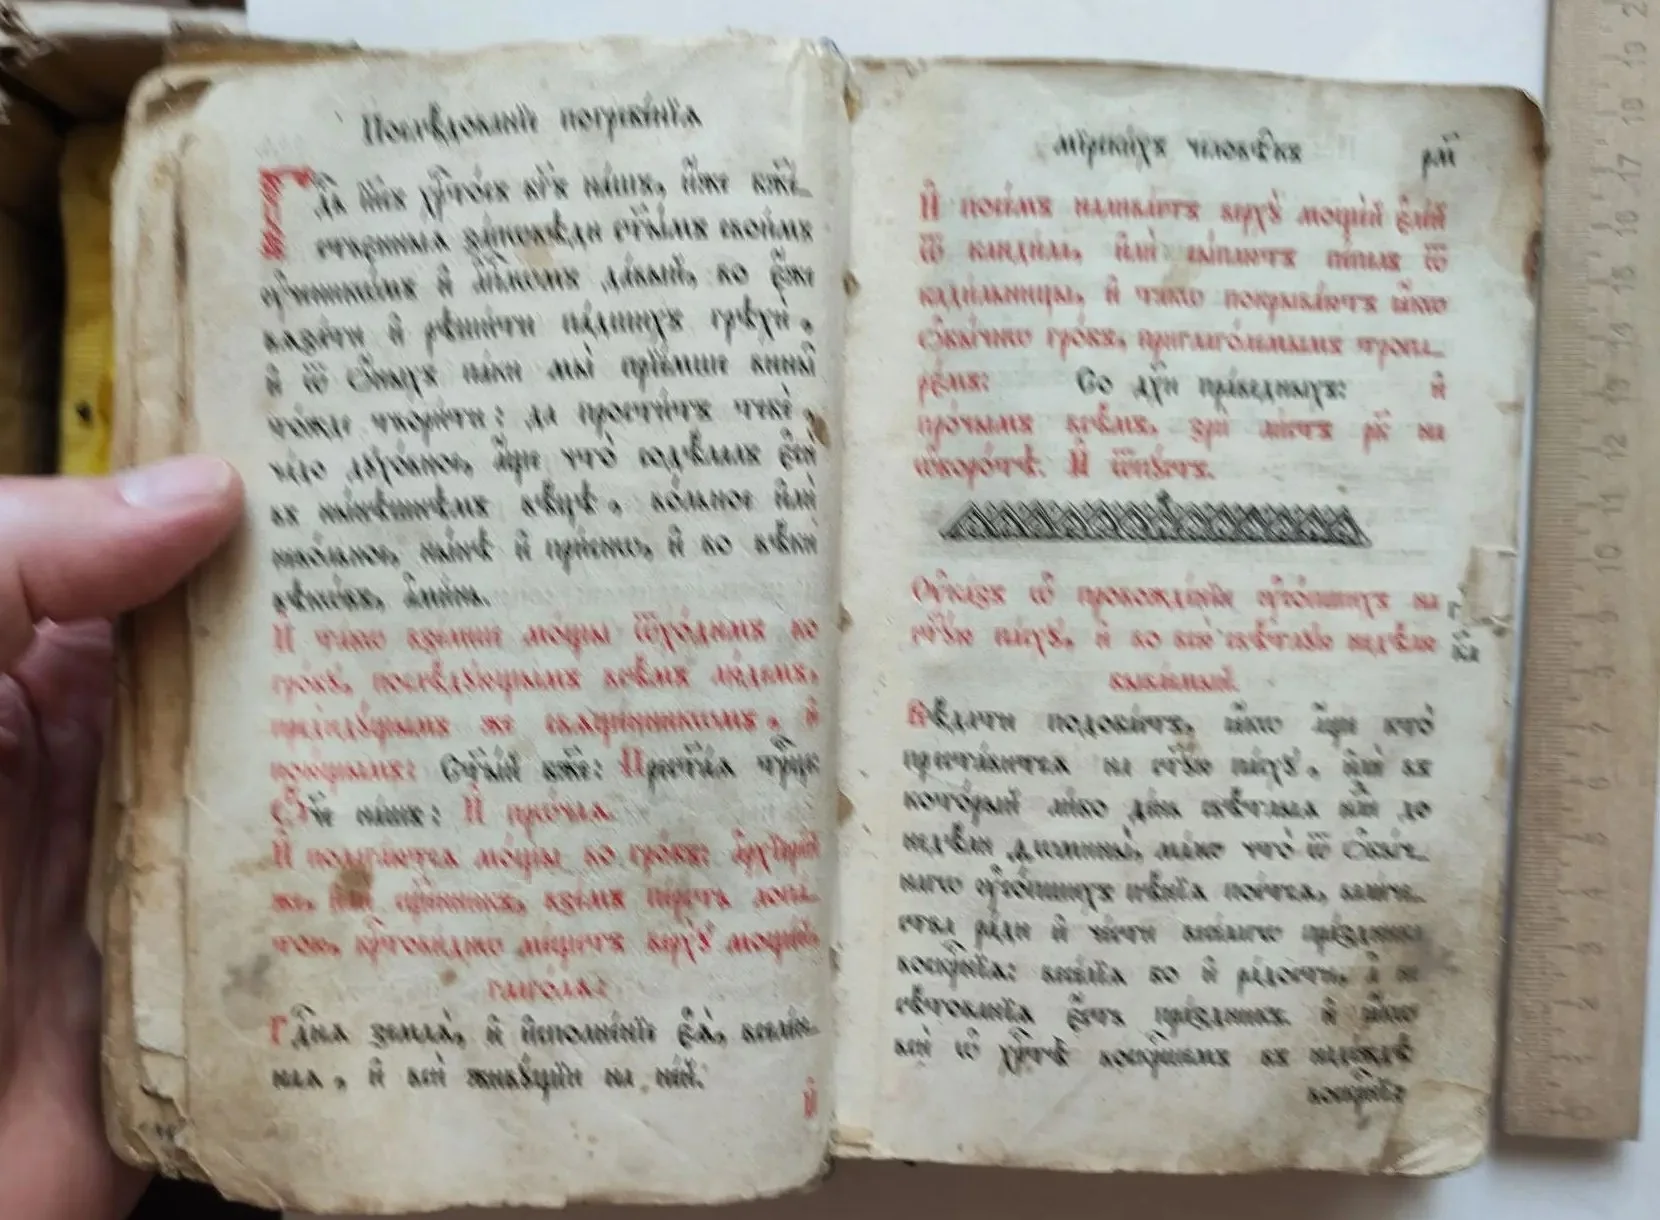 Послѣдованїе погребе́нїѧ
Гдⷭ҇ь і҆и҃съ хрⷭ҇то́съ бг҃ъ на́шъ, и҆́же бж҃е́-
ственныѧ за́пѡвѣди ст҃ы̑мъ свои̑мъ
ᲂу҆чн҃кѡ́мъ и҆ а҆пⷭ҇лѡмъ да́вый, во є҆́же
вѧза́ти и҆ рѣши́ти па́дшихъ грѣхѝ,
и҆ ѿ ѻ҆́ныхъ па́ки мы̀ прїе́мше вины̑
то́жде твори́ти: да прости́тъ тебѐ,
ча́до дꙋхо́вное, а҆́ще что̀ содѣ́лалъ є҆сѝ
въ ны́нѣшнѣмъ вѣ́цѣ, во́льное и҆лѝ
нево́льное, ны́нѣ и҆ при́снѡ, и҆ во вѣ́ки
вѣкѡ́въ, а҆ми́нь.
И҆ та́кѡ взе́мше мѡ́щы ѿхо́димъ ко
гро́бꙋ, послѣ́дꙋющымъ всѣ̑мъ лю́демъ,
предидꙋ́щымъ же свѧще́нникѡмъ, и҆
пою́щымъ: Ст҃ы́й бж҃е: Прест҃а́ѧ трⷪ҇це:
Ѻ҆́ч҃е на́шъ: И҆ прѡ́чаѧ.
И҆ полага́ютсѧ мѡ́щы во гро́бѣ: а҆рхїере́й
же, и҆лѝ сщ҃е́нникъ, взе́мъ пе́рсть лопа́-
тою, крⷭ҇тови́днѡ ме́щетъ верхꙋ̀ моще́й,
глаго́лѧ:
Гдⷭ҇нѧ землѧ̀, и҆ и҆сполне́нїе є҆ѧ̀, вселе́н-
наѧ, и҆ всѝ живꙋ́щїи на не́й.
И҆
мїрски́хъ человѣ̑къ рм҃г
И҆ посе́мъ возлива́етъ верхꙋ̀ моще́й є҆ле́й
ѿ канди́ла, и҆лѝ сы́плетъ пе́пелъ ѿ
кади́льницы, и҆ та́кѡ покрыва́ютъ ꙗ҆́кѡ
ѻ҆бы́чнѡ гро́бъ, приглаго́лемымъ тропа-
рє́мъ: Со дꙋ́хи првⷣныхъ: и҆
прѡ́чымъ всѣ̑мъ, зрѝ ли́стъ рк҃ на
ѡ҆боро́тѣ. И҆ ѿпꙋ́стъ.
Оу҆ка́зъ ѡ҆ провожде́нїи ᲂу҆со́пшихъ на
ст҃ꙋ́ю па́схꙋ, и҆ во всю̀ свѣ́тлꙋю недѣ́лю
быва́емый.
Вѣ́дати подоба́етъ, ꙗ҆́кѡ а҆́ще кто̀
преста́витсѧ на ст҃ꙋ́ю па́схꙋ, и҆лѝ въ
кото́рый ли́бо де́нь свѣ́тлыѧ сеѧ̀ до
недѣ́ли ѳѡмины̀, ма́лѡ что̀ ѿ ѻ҆бы́ч-
нагѡ ᲂу҆со́пшихъ пѣ́нїѧ пое́тсѧ, вели́че-
ства ра́ди и҆ че́сти весе́лагѡ пра́здника
воскрⷭ҇нїѧ: весе́лїѧ бо и҆ ра́дости, а҆ не
сѣ́тованїѧ є҆́сть пра́здникъ. и҆ ꙗ҆́кѡ
всѝ ѡ҆ хрⷭ҇тѣ̀ воскрⷭ҇шемъ въ наде́ждѣ
воскрⷭ҇нїѧ